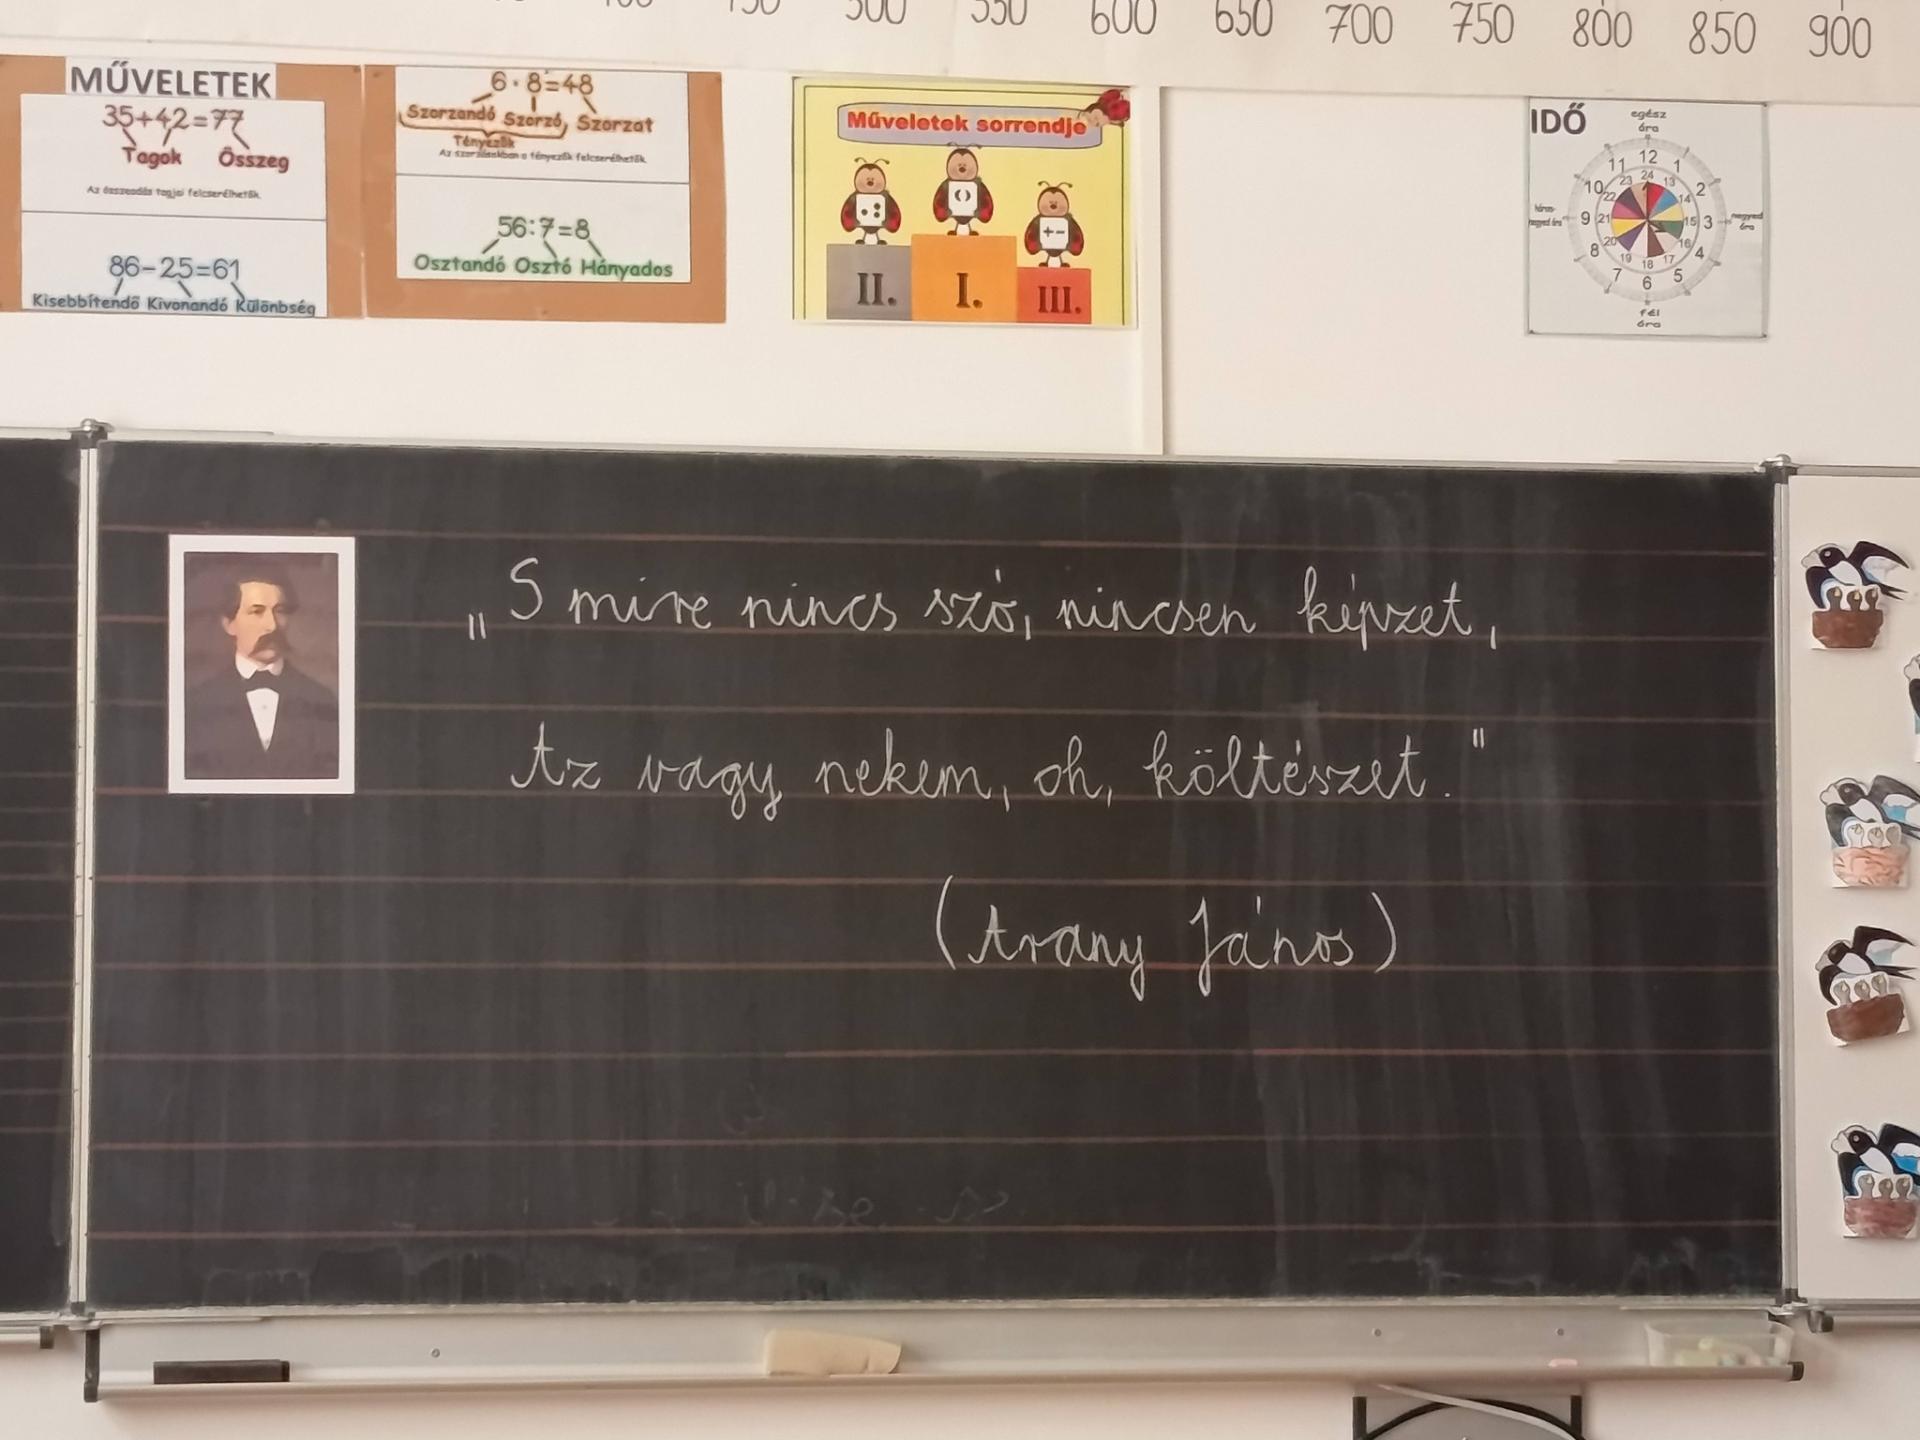 500
550
600
650
700
750
800
850
900
MŰVELETEK
35+42=77
Tagok Összeg
Az összeadás tagjai felcserélhetők.
86-25=61
Kisebbítendő Kivonandó Különbség
6·8=48
Szorzandó Szorzó, Szorzat
Tényezők
Az szorzásokban a tényezők felcserélhetők.
56:7=8
Osztandó Osztó Hányados
Műveletek sorrendje
( )
+ -
II. I. III.
IDŐ
egész
óra
12 1 2 3 4 5 6 7 8 9 10 11
24 13 14 15 16 17 18 19 20 21 22 23
negyed
óra
fél
óra
három-
negyed óra
„S mire nincs szó, nincsen képzet,
Az vagy nekem, oh, költészet."
(Arany János)